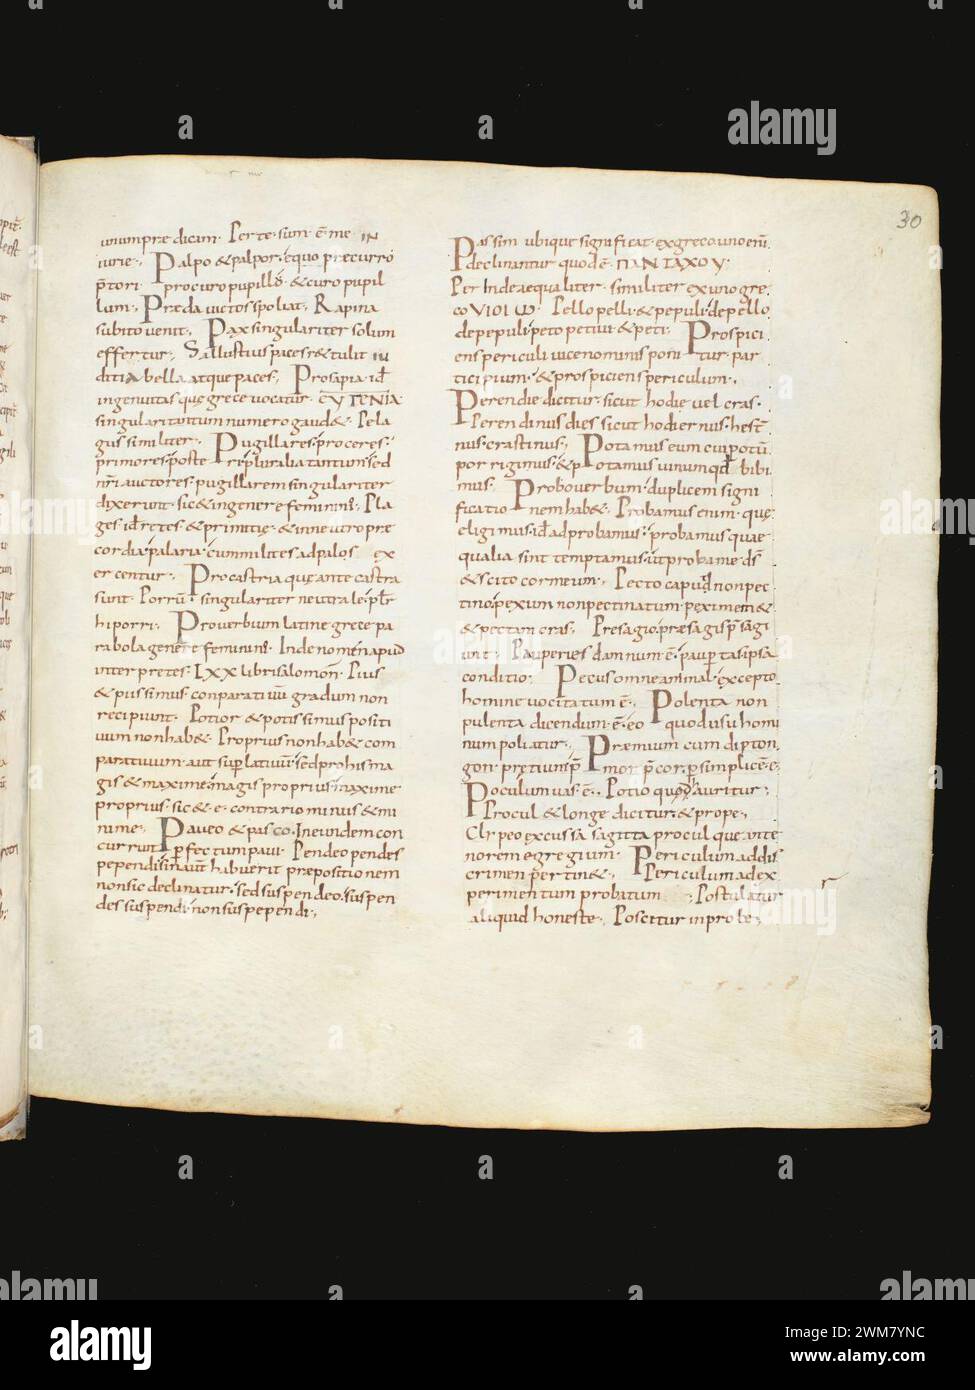 30
unum prædicam. Per te. sum. ē. me IN
iurie. Palpo & palpor. equo precurrō
p̄tori. procuro pupillū. & curo pupil
lum. Præda uictos spoliat. Rapina
subito uenit. Pax singulariter solum
effertur. Sallustius paces r&tulit IN
ditia bella atque paces. Prosapia id
ingenuitas quę grece uocatur. ЄΥΓЄΝΙΑ.
singularitantum numero gaud&. Pela
gus similiter. Pugillares. proceres.
primores. poste pluralia tantum. sed
nr̄i auctores. pugillarem singulariter
dixerunt. sic & ingenere feminino. Pla
ges. id retes. & primitię. & inneutro præ
cordia. palaria. cum milites ad palos ex
ercentur. Procastria quę ante castra
sunt. Porrū. singulariter neutrale. plr̄
hi porri. Prouerbium latine. grece pa
rabola genere feminino. Inde nomen apud
interpretes. LXX libri salomon̄. Pius
& piissimus. conparatiuū gradum non
recipiunt. Potior & potissimus positi
uum non hab&. Proprius non hab& com
paratiuum. aut superlatiuū. sed pro his ma
gis & maxime. magis proprius. maxime
proprius. sic & e. contrario minus & mi
nime. Paueo & pasco. In eundem con
currunt perfectum paui. Pendeo pendes
pependi. sin aut habuerit præpositionem
non sic declinatur. sed suspendeo. suspen
des suspendi. non suspependi.
Passim ubique significat. ex greco uno enī
declinantur quod ē. ΠΑΝΤΑΧΟΥ.
Per Inde aequaliter. similiter ex uno gre
co VIOI W. Pello pelli. & pepuli. depello
depepuli. peto petiui & peti. Prospici
ens periculi uice nominis ponitur. par
ticipium. & prospiciens periculum.
Perendie dicitur. sicut hodie uel cras.
Perendinus dies sicut hodiernus. hest
nus. crastinus. Potamus eum cui potū
porrigimus. & potamus uinum qd bibi
mus. Probo uerbum. duplicem signi
ficationem hab&. Probamus enim. quę
eligimus. id adprobamus. probamus quae
qualia sint temptamus. ut proba me ds̄
& scito cor meum. Pecto caput non pec
tino. pexum non pectinatum. pexi me &
& pectam cras. Presagio. præsagis p̄sagi
uit. Pauperies damnum ē. paupertas ipsa
conditio. Pecus omne animal. excepto
homine uocitatum ē. Polenta non
pulenta dicendum. ē. eo quod usu homi
num poliatur. Præmium cum dipton
gon. prętium p̄mor p̄cor. p simplicē. e.
Poculum uas. ē. Potio quod auritur.
Procul & longe dicitur. & prope.
Clr peo excussa sagitta procul que ante
norem egregium. Periculum ad dis
crimen pertin&. Periculum ad ex
perimentum probatum. Postulatur
aliquid honeste. Poscitur inprobe.